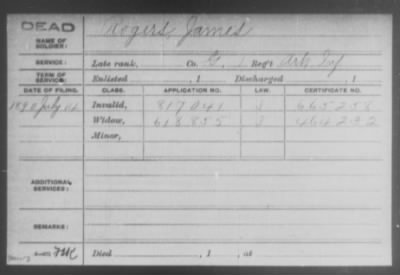 DEAD
NAME OF SOLDIER:
Rogers James
SERVICE:
Late rank, Co. G, 1 Reg't Ark Inf
TERM OF SERVICE:
Enlisted , 1 Discharged , 1
DATE OF FILING. CLASS. APPLICATION NO. LAW. CERTIFICATE NO.
1890 July Invalid, 817041 J 665258
Widow, 618855 J 464292
Minor,
ADDITIONAL SERVICES:
REMARKS:
Died , 1 , at